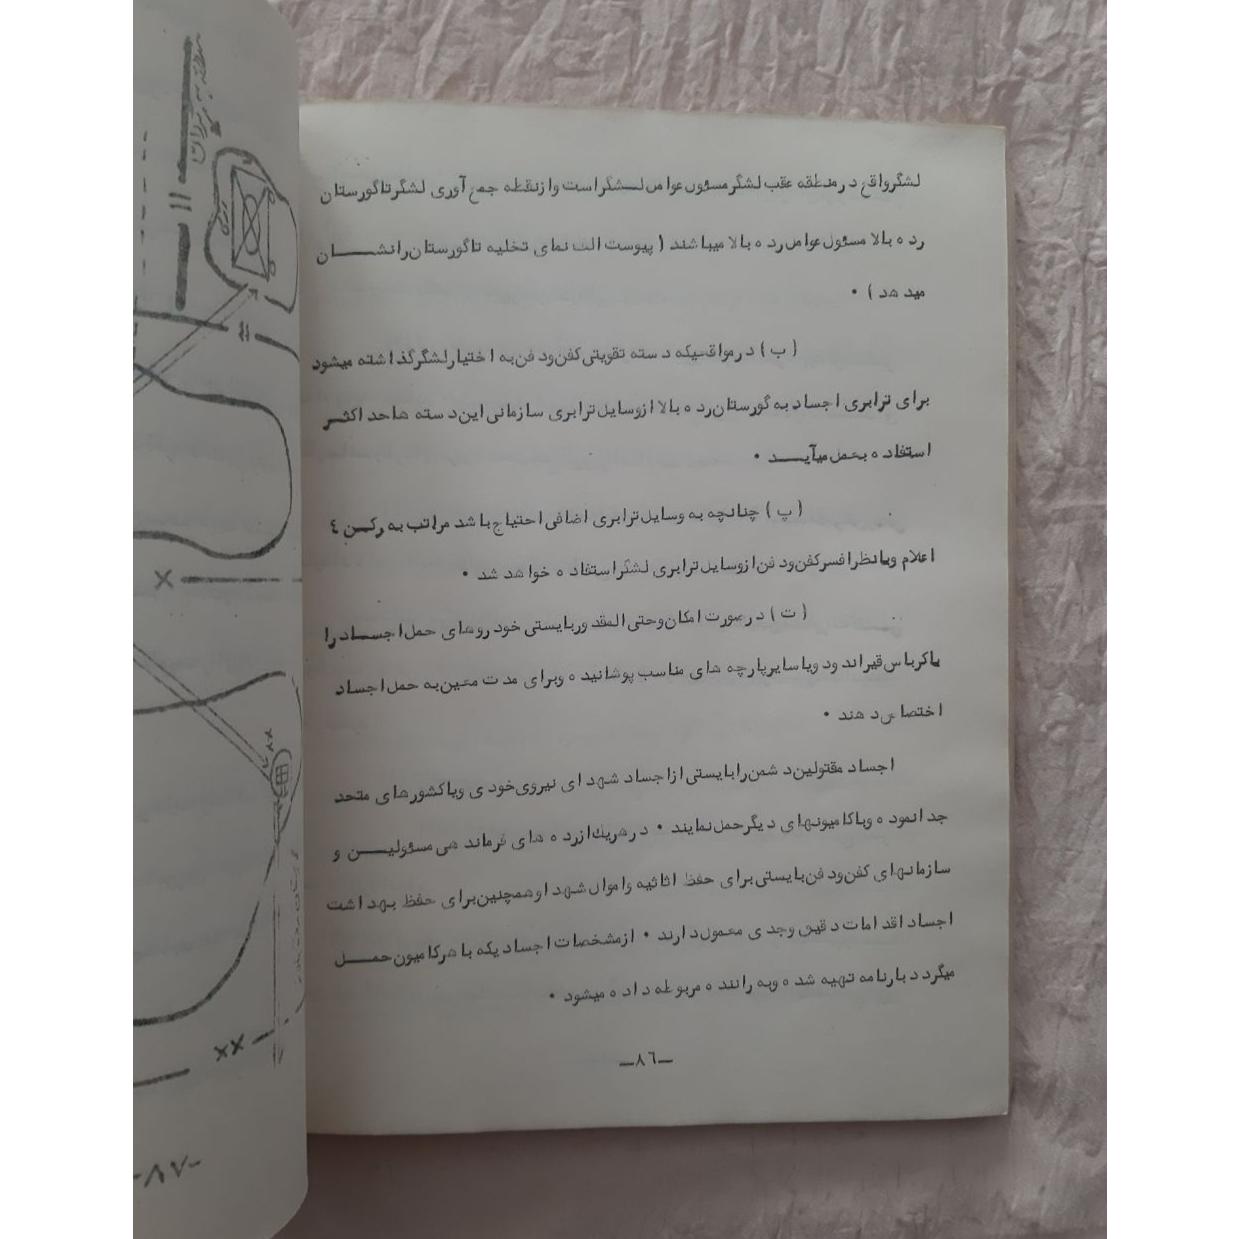 لشگرواقع درمنطقه عقب لشگرمسئول عوامل لشگراست وازنقطه جمع آوری لشگرتاگورستان
رده بالا مسئول عوامل رده بالا میباشند ( پیوست الف نمای تخلیه تاگورستان رانشان
میدهد ) •
( ب ) درمواقعیکه دسته تقویتی کفن ودفن به اختیارلشگرگذاشته میشود
برای ترابری اجساد به گورستان رده بالا ازوسایل ترابری سازمانی این دسته ها حد اکثر
استفاده بعمل میآید •
( پ ) چنانچه به وسایل ترابری اضافی احتیاج باشد مراتب به رکن ٤
اعلام وبانظرافسرکفن ودفن ازوسایل ترابری لشگراستفاده خواهد شد •
( ت ) درصورت امکان وحتی المقدوربایستی خودروهای حمل اجساد را
باکرباس قیراندود ویا سایرپارچه های مناسب پوشانیده وبرای مدت معین به حمل اجساد
اختصاص دهند •
اجساد مقتولین دشمن رابایستی ازاجساد شهدای نیروی خودی ویاکشورهای متحد
جدانموده وباکامیونهای دیگرحمل نمایند • درهریك ازرده های فرماندهی مسئولین و
سازمانهای کفن ودفن بایستی برای حفظ اثاثیه واموال شهدا وهمچنین برای حفظ بهداشت
اجساد اقدامات دقیق وجدی معمول دارند • ازمشخصات اجسادیکه با هرکامیون حمل
میگردد بارنامه تهیه شده وبه راننده مربوطه داده میشود •
ـ٨٦ـ
XX
X
-٨٧-